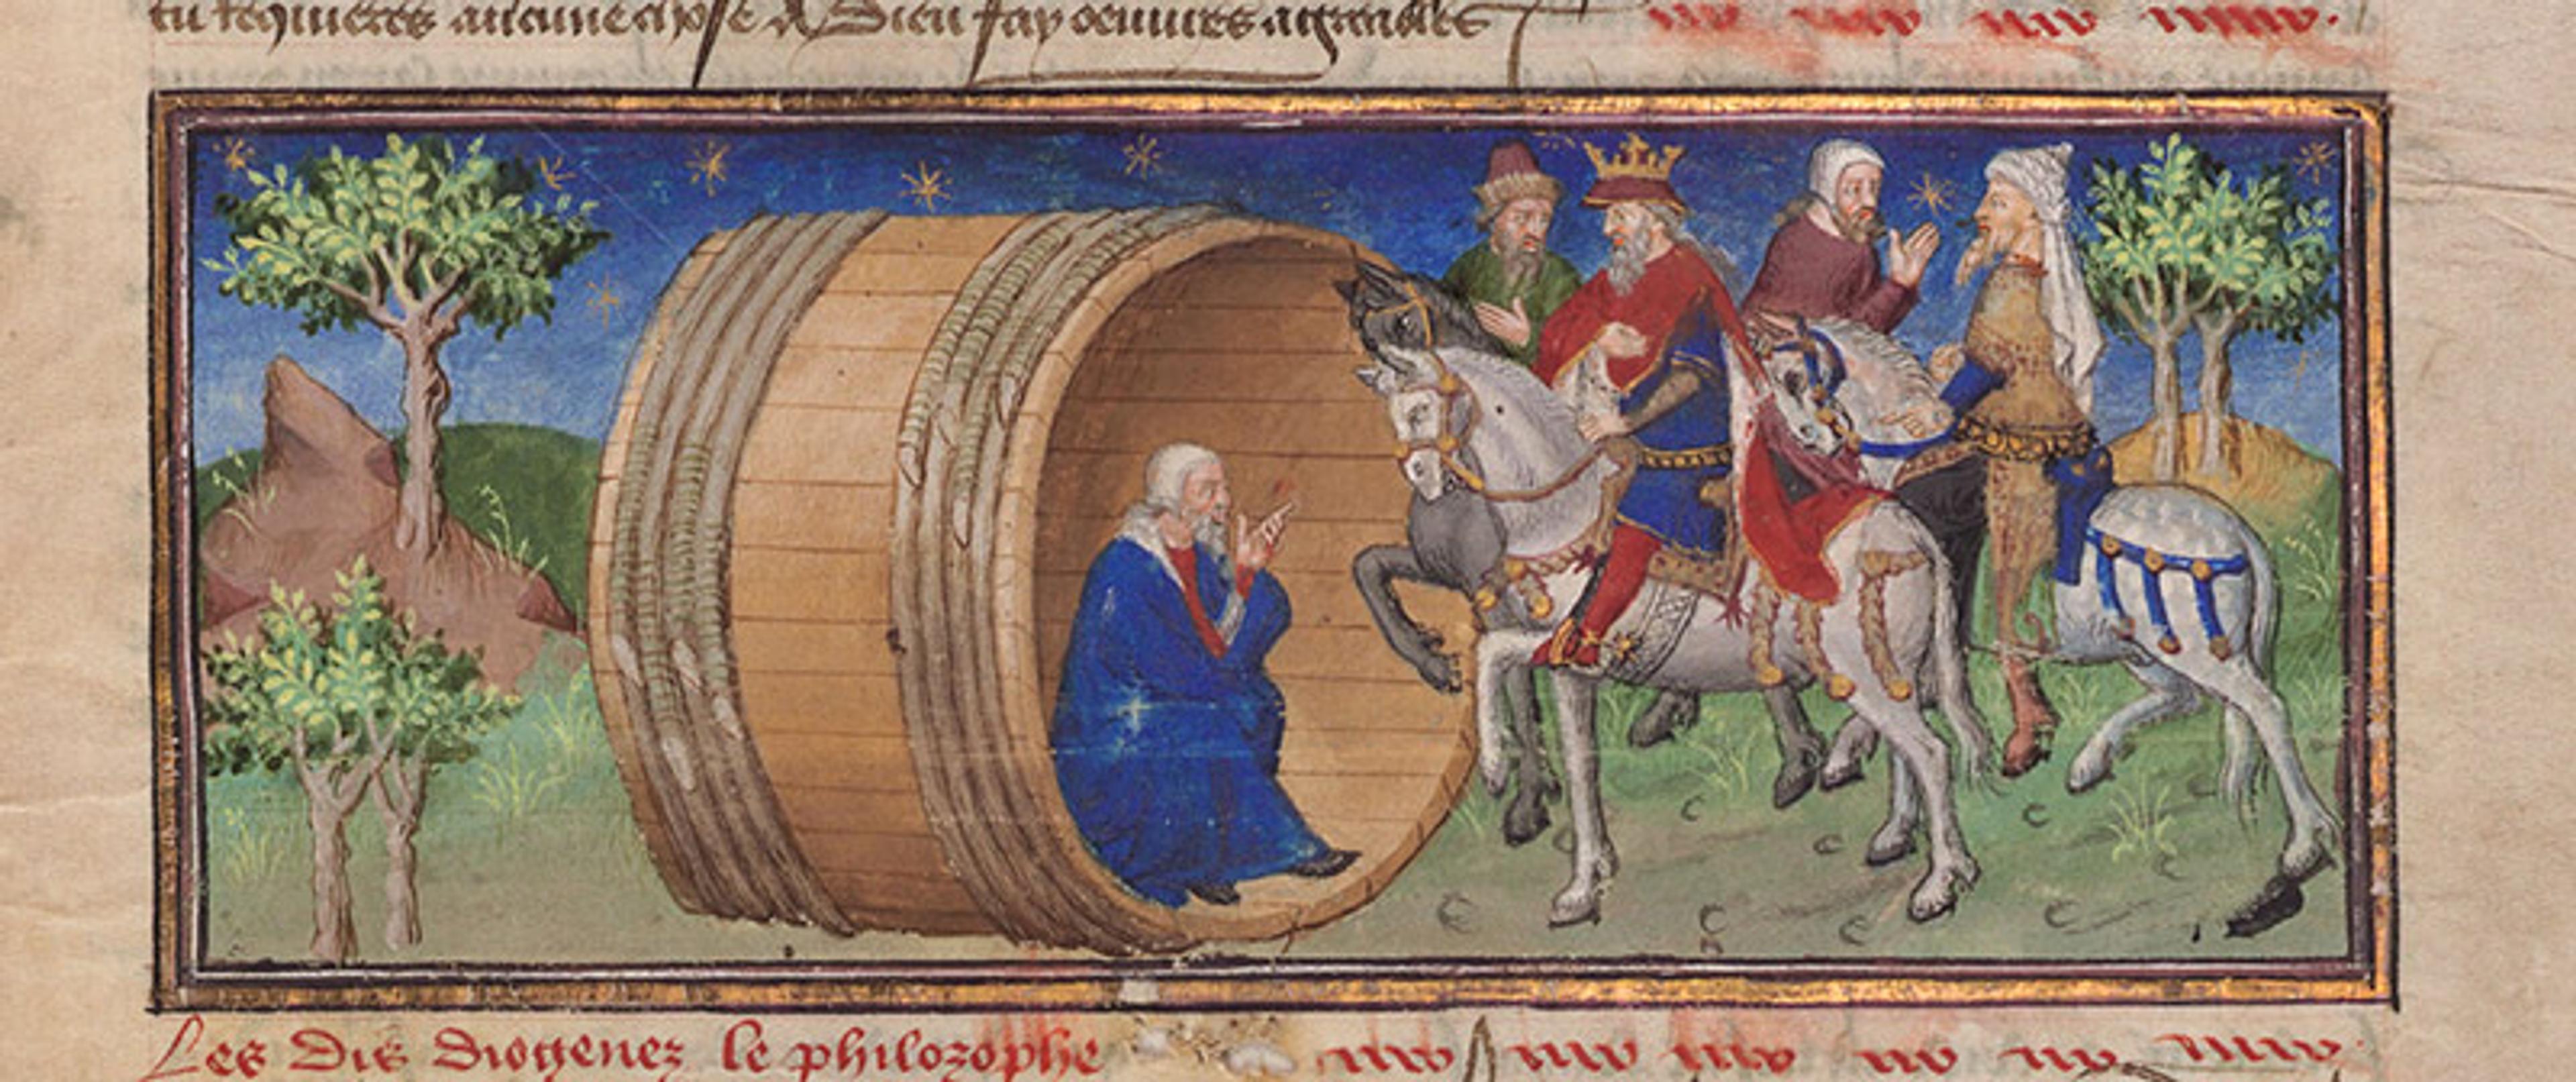 tu requieres aucune chose a Dieu fay oeuures agreables
Les Dis diogenez le philozophe